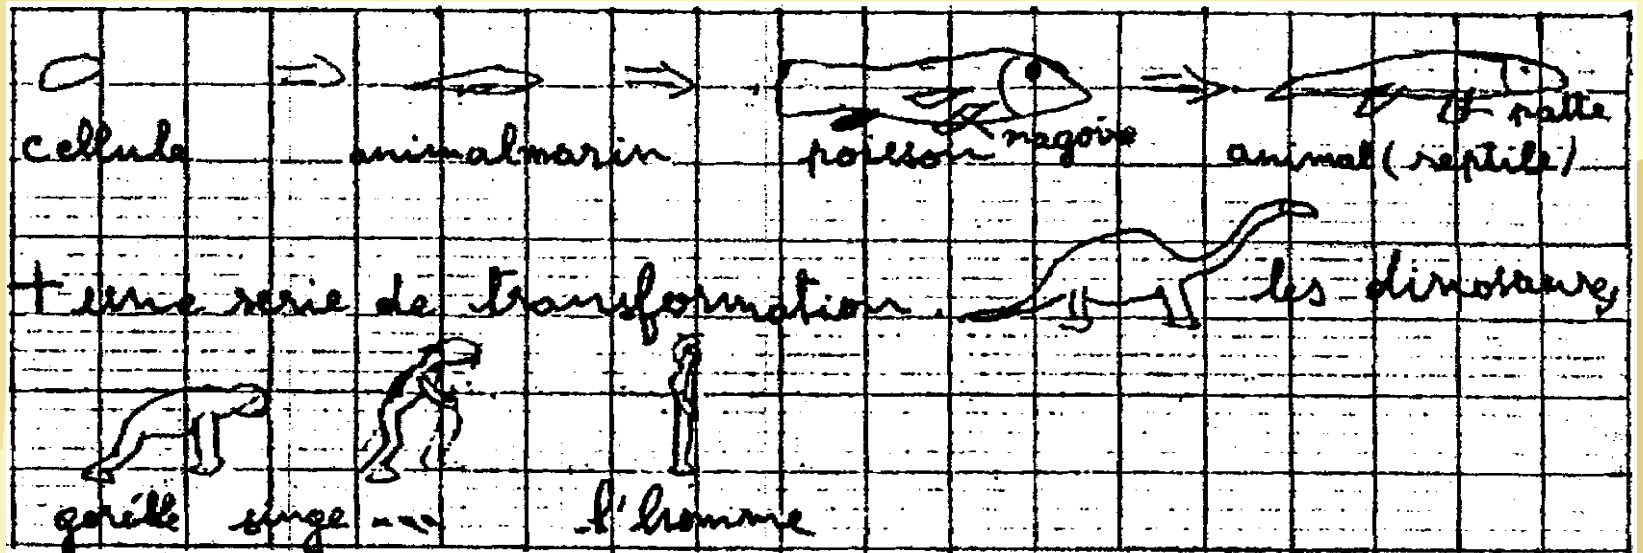 cellule animal marin poisson nagoire animal (reptile) patte
+ une serie de transformation. les dinosaures
gorille singe --- l'homme